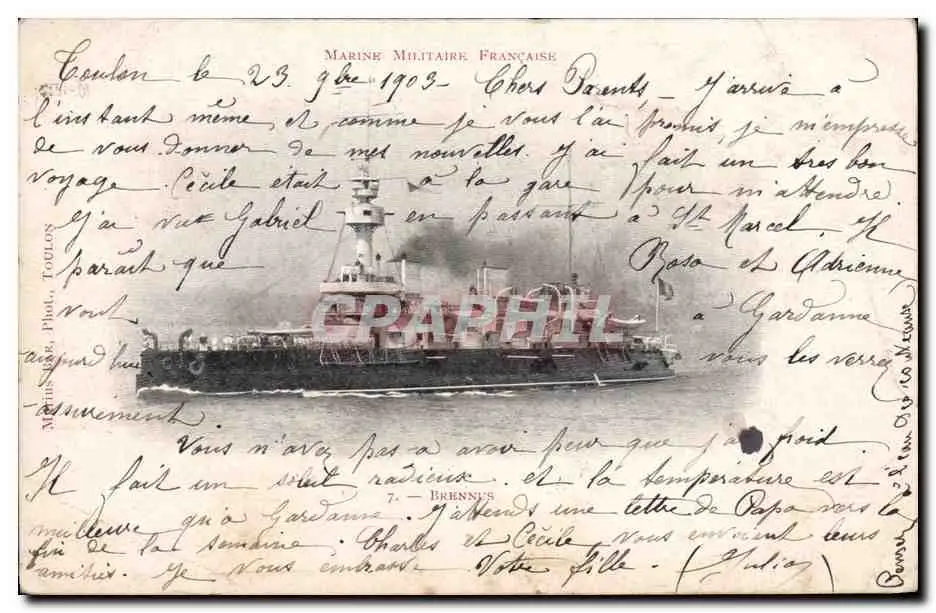 MARINE MILITAIRE FRANÇAISE
Toulon le 23 9bre 1903 - Chers Parents - J'arrive à
l'instant même, et comme je vous l'ai promis, je m'empresse
de vous donner de mes nouvelles. J'ai fait un tres bon
voyage. Cécile était à la gare pour m'attendre.
J'ai vu Gabriel en passant à St Marcel. Il
paraît que Rosa et Adrienne
vont à Gardanne
aujourd'hui vous les verrez
assurement.
Vous n'avez pas à avoir peur que j'ai froid
Il fait un soleil radieux et la température est
meilleure qu'à Gardanne. J'attends une lettre de Papa vers la
fin de la semaine. Charles et Cécile, vous envoient leurs
amitiés. Je vous embrasse Votre fille. (Julia)
7. — BRENNUS
Marius Bar, Phot., TOULON
CPAPHIL